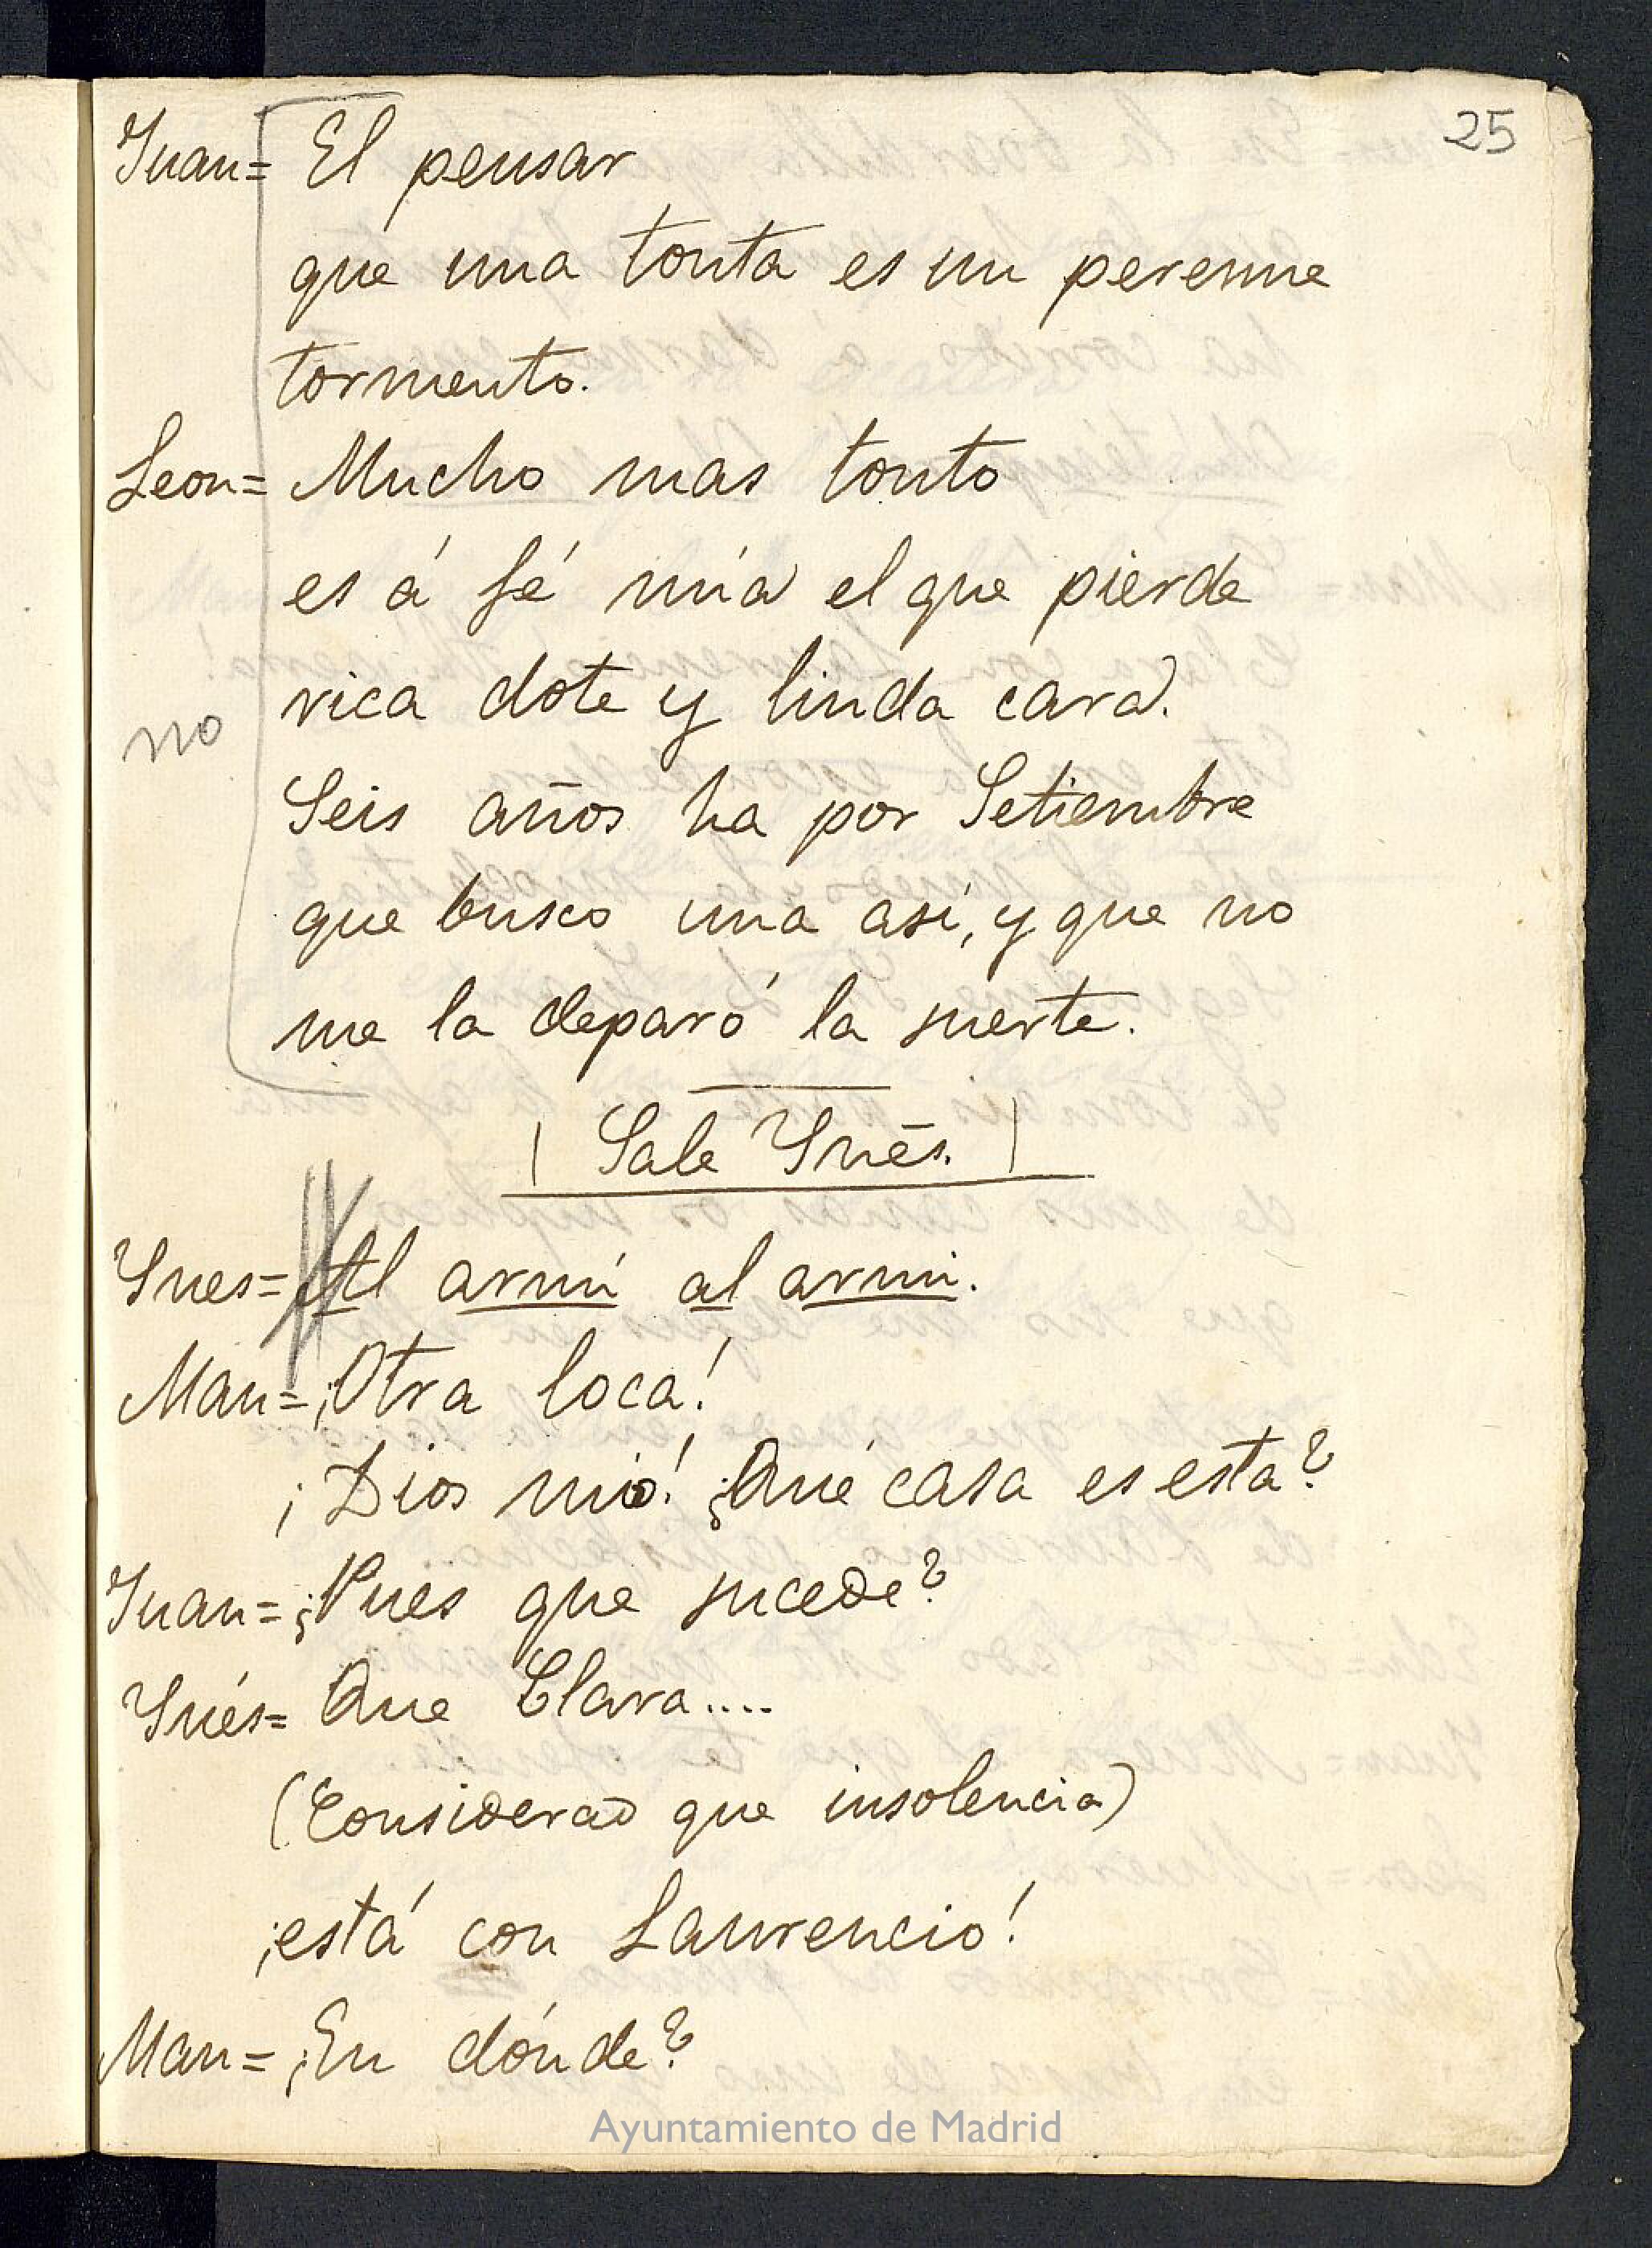 25
Juan= El pensar
que una tonta es un perenne
tormento.
Leon= Mucho mas tonto
es á fé mía el que pierde
rica dote y linda cara.
no
Seis años ha por Setiembre
que busco una así, y que no
me la deparó la suerte.
( Sale Ynés. )
Ynes= Al armi al armi.
Man= ¡Otra loca!
¡Dios mio! ¿Qué casa es esta?
Juan= ¿Pues que sucede?
Ynés= Que Clara....
(Considerad que insolencia)
¡está con Laurencio!
Man= ¿En dónde?
Ayuntamiento de Madrid